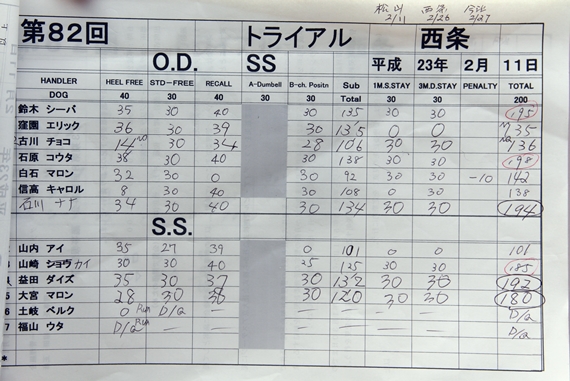 松山 西条 今治
2/11 2/26 2/27
第82回 トライアル 西条
O.D. SS 平成 23年 2月 11日
HANDLER HEEL FREE STD-FREE RECALL A-Dumbell B-ch. Positn Sub 1M.S.STAY 3M.D.STAY PENALTY TOTAL
DOG 40 30 40 30 30 Total 30 30 200
鈴木 シーバ 35 30 40 30 135 30 30 195
窪園 エリック 36 30 39 30 135 0 0 135
古川 チョコ 14 30 34 28 106 30 30 136
石原 コウタ 38 30 40 30 138 30 30 198
白石 マロン 32 30 0 30 92 30 30 -10 142
信高 キャロル 8 30 40 30 108 0 30 138
石川 ナナ 34 30 40 30 134 30 30 194
S.S.
山内 アイ 35 27 39 0 101 0 0 101
山崎 ショウカイ 30 30 40 25 125 30 30 185
益田 ダイズ 35 30 37 30 132 30 30 192
5 大宮 マロン 28 30 30 120 30 30 180
6 土岐 ベルク 0 Run D/Q — — — — — — D/Q
7 福山 ウタ D/Q Run — — — — — — D/Q
*